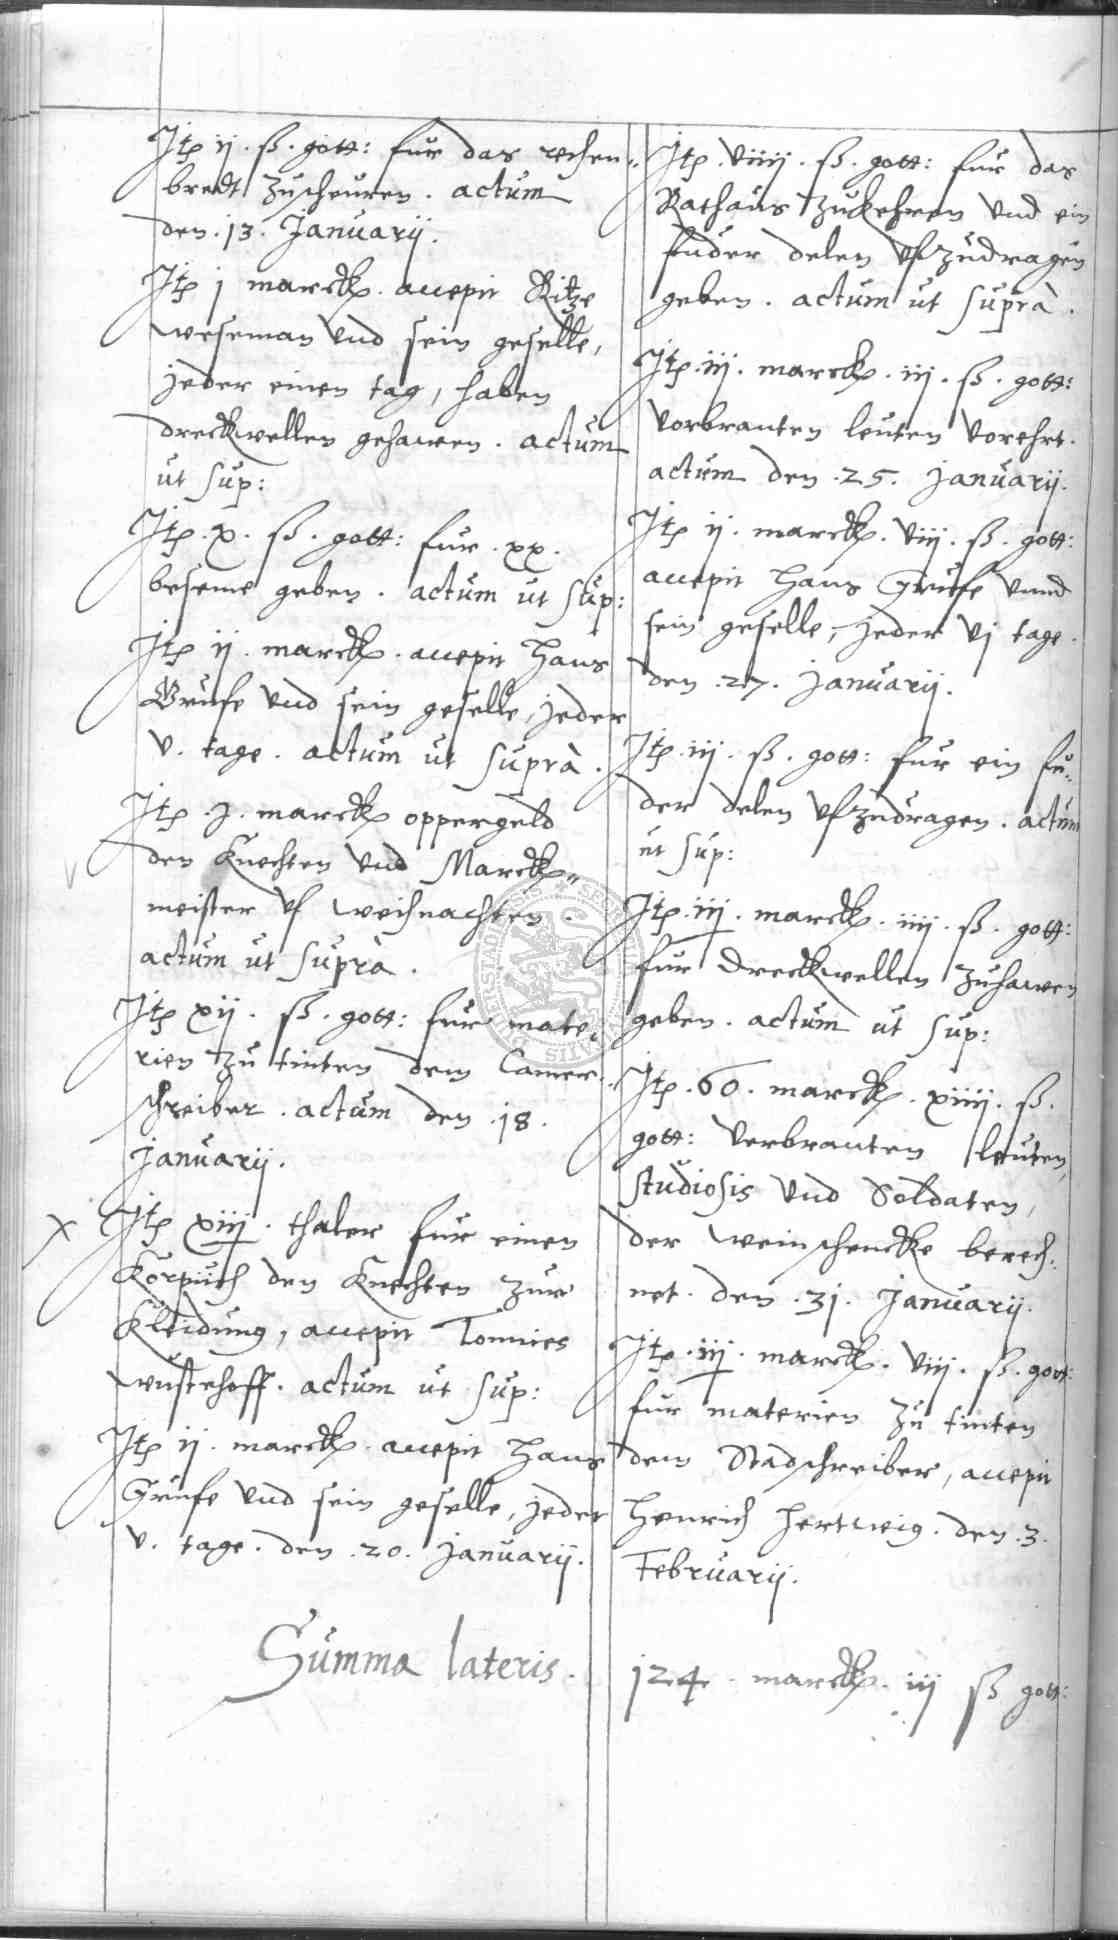 Itp ij. ß. gott: fur das rechen-
bredt zuscheuren. actum
den. 13. Januarij.
Itp j marck. accepit Ritze
Weseman vnd sein geselle,
jeder einen tag, haben
dreckwellen gehawen. actum
ut sup:
Itp. x. ß. gott: fur. xx.
beseme geben. actum ut sup:
Itp ij. marck. accepit Hans
Grufe vnd sein geselle, jeder
v. tage. actum ut suprà.
Itp. j. marck oppergeld
den Knechten vnd Marck-
meister vf weihnachten.
actum ut suprà.
Itp xij. ß. gott: fur mate-
rien zu tinten dem Camer-
schreiber. actum den. 18.
Januarij.
x Itp xiij. thaler fur einen
den Knechten zur
Kleidung, accepit Tonnies
Wustehoff. actum ut sup:
Itp ij. marck. accepit Hans
Grufe vnd sein geselle, jeder
v. tage. den. 20. Januarij.
Itp. viiij. ß. gott: fur das
Rathaus zukehren vnd ein
fuder delen vfzudragen
geben. actum ut suprà.
Itp. iij. marck. iij. ß. gott:
vorbranten leuten vorehrt.
actum den. 25. Januarij.
Itp ij. marck. viij. ß. gott:
accepit Hans Grufe vnnd
sein geselle, jeder vj tage.
den. 27. Januarij.
Itp. iij. ß. gott: fur ein fu-
der delen vfzudragen. actum
ut sup:
Itp. iij. marck. iiij. ß. gott:
fur dreckwellen zuhawen
geben. actum ut sup:
Itp. 60. marck. xiiij. ß.
gott: verbranten leuten,
studiosis vnd Soldaten,
der weinschencke berech-
net. den. 31. Januarij.
Itp. iij. marck. viij. ß. gott:
fur materien zu tinten
dem Stadschreiber, accepit
Henrich Hertwig. den. 3.
Februarij.
Summa lateris. 124. marck. iij ß gott: